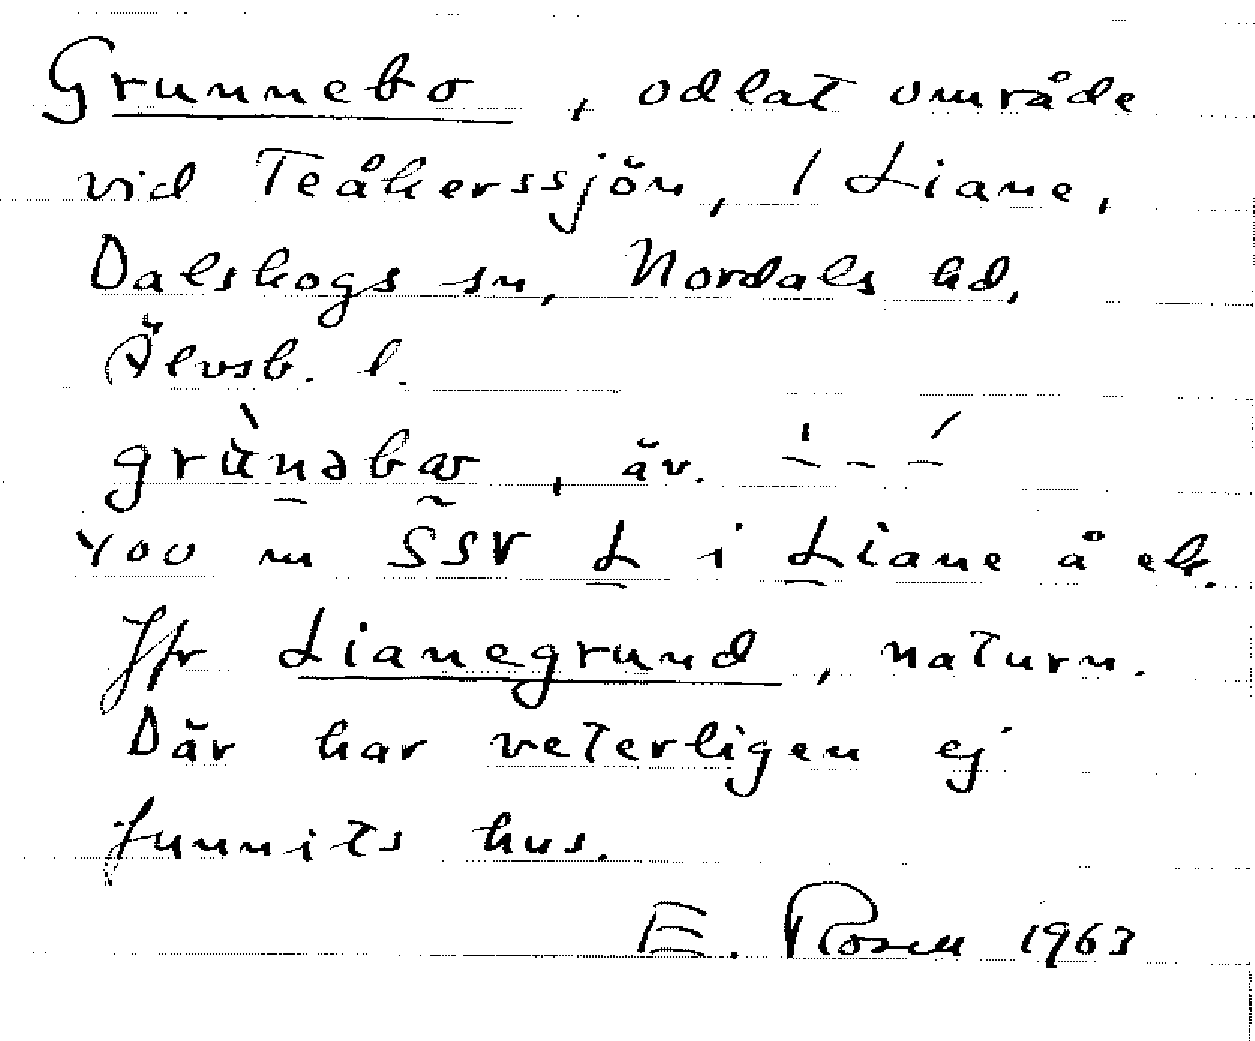 Grunnebo, odlat område
vid Teåkerssjön, 1 Liane,
Dalskogs sn, Nordals hd,
Älvsb. l.
grùnəbω, äv.
400 m SSV L i Liane å ek.
Jfr Lianegrund, naturn.
Där har veterligen ej
funnits hus.
E. Rosell 1963